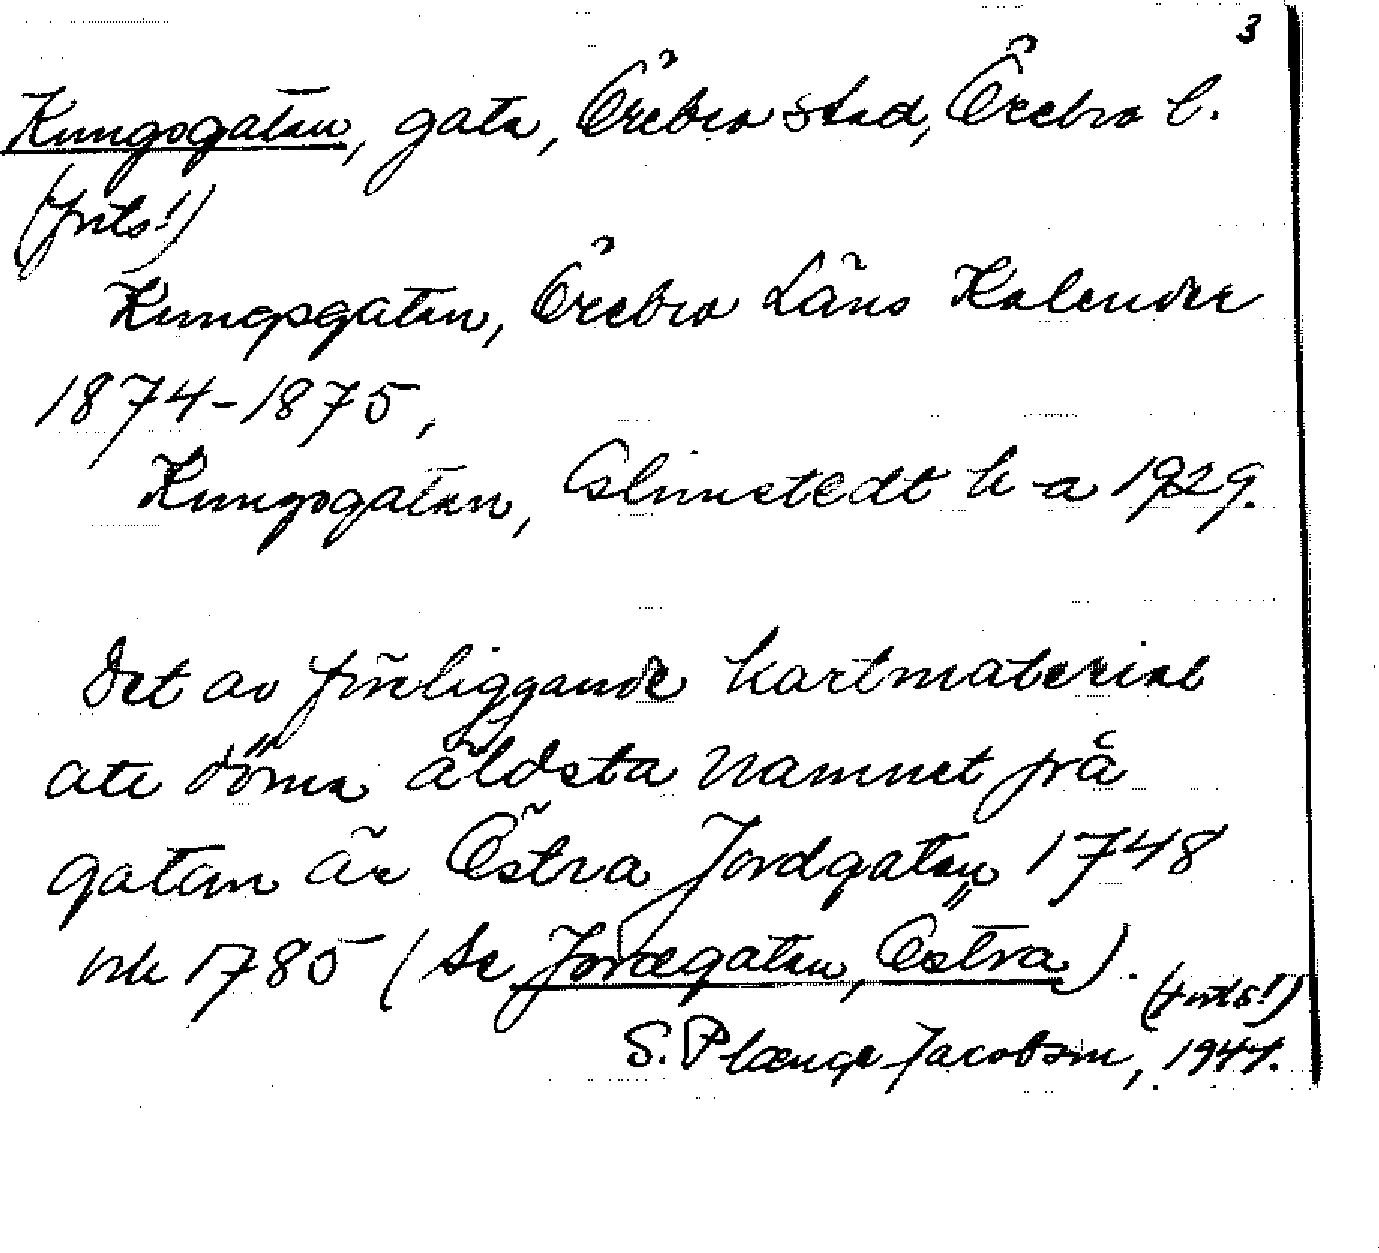 3
Kungsgatan, gata, Örebro stad, Örebro l.
(forts!)
Kungsgatan, Örebro Läns Kalender
1874-1875,
Kungsgatan, Almstedt k-a 1929.
Det av föreliggande kartmaterial
att döma äldsta namnet på
gatan är Östra Jordgatan, 1748
och 1785 (se Jordgatan, Östra).
(forts!)
S. Plænge Jacobson, 1947.